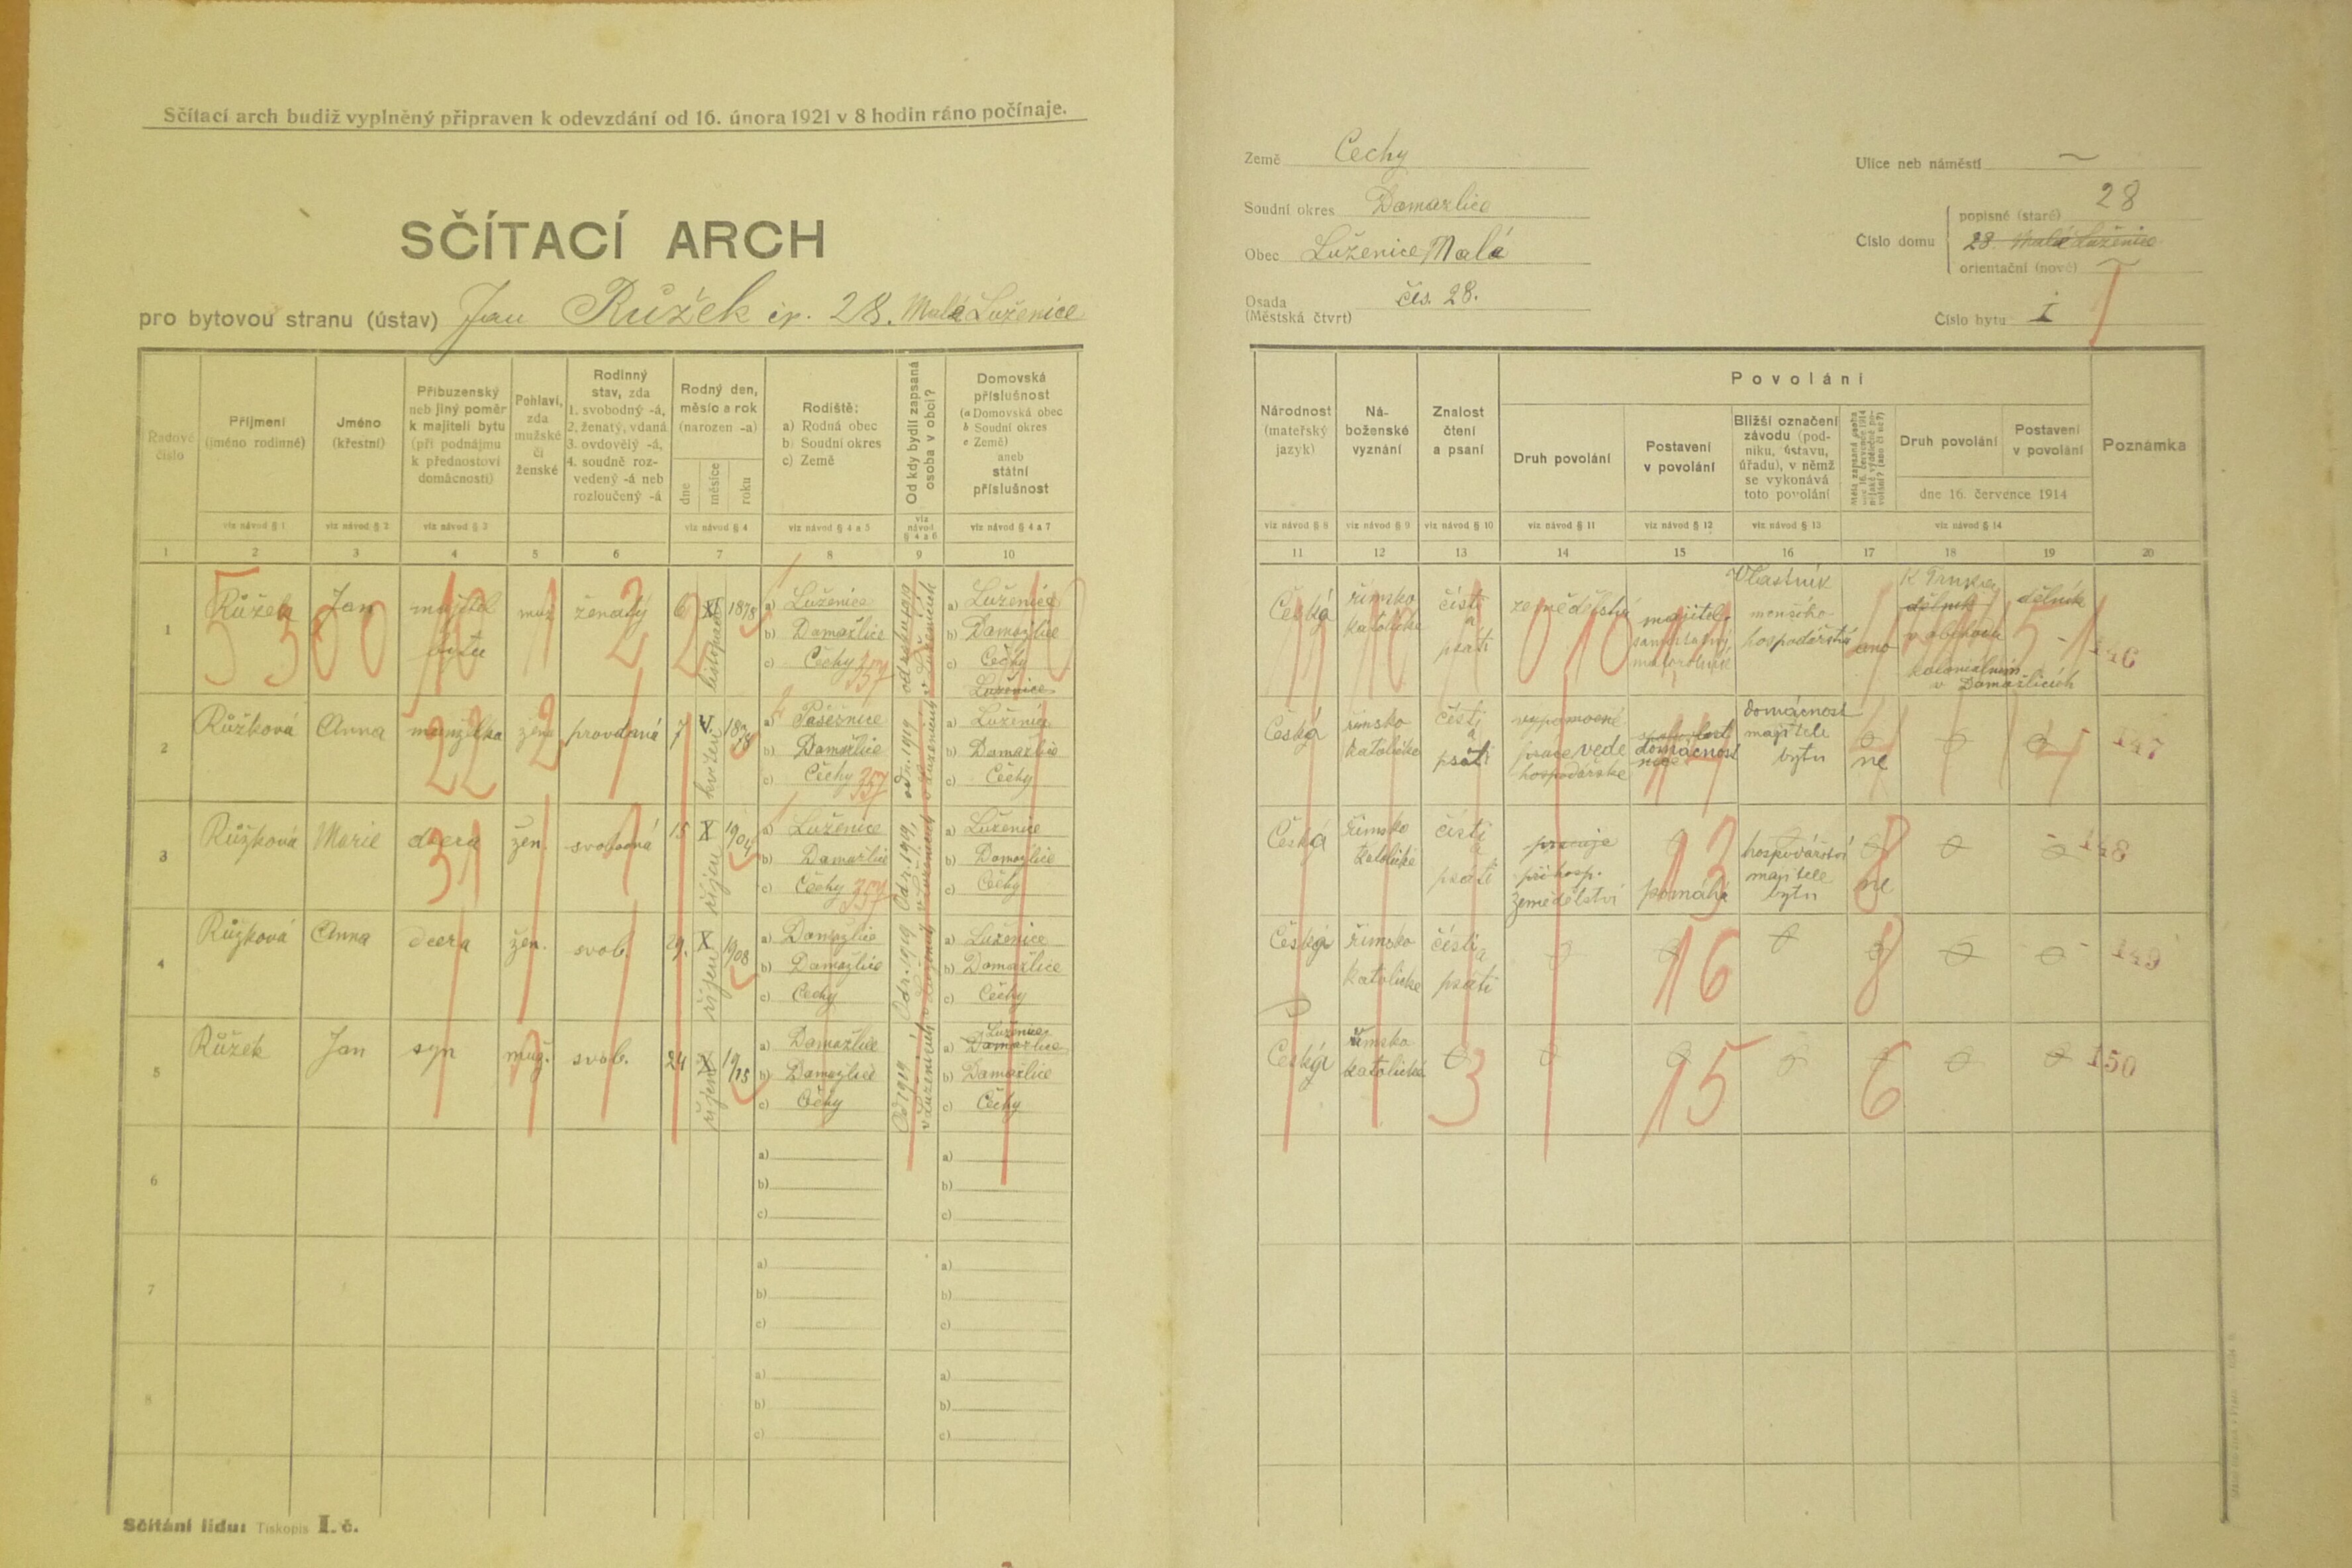 Sčítací arch budiž vyplněný připraven k odevzdání od 16. února 1921 v 8 hodin ráno počínaje.
SČÍTACÍ ARCH
pro bytovou stranu (ústav) Jan Růžek čp. 28. Malá Luženice
Země Čechy
Soudní okres Domažlice
Obec Luženice Malá
Osada
(Městská čtvrť) čís. 28.
Ulice neb náměstí
Číslo domu
popisné (staré) 28
28. Malá Luženice
orientační (nové)
Číslo bytu I
Řadové číslo
Příjmení (jméno rodinné)
Jméno (křestní)
Příbuzenský neb jiný poměr k majiteli bytu (při podnájmu k přednostovi domácnosti)
Pohlaví, zda mužské či ženské
Rodinný stav, zda 1. svobodný -á, 2. ženatý, vdaná 3. ovdovělý -á, 4. soudně rozvedený -á neb rozloučený -á
Rodný den, měsíc a rok (narozen -a)
dne měsíce roku
Rodiště: a) Rodná obec b) Soudní okres c) Země
Od kdy bydlí zapsaná osoba v obci?
Domovská příslušnost (a Domovská obec b Soudní okres c Země) aneb státní příslušnost
viz návod § 1 viz návod § 2 viz návod § 3 viz návod § 4 viz návod § 4 a 5 viz návod § 4 a 6 viz návod § 4 a 7
1 2 3 4 5 6 7 8 9 10
Národnost (mateřský jazyk)
Náboženské vyznání
Znalost čtení a psaní
Povolání
Druh povolání
Postavení v povolání
Bližší označení závodu (podniku, ústavu, úřadu), v němž se vykonává toto povolání
Druh povolání
Postavení v povolání
dne 16. července 1914
Poznámka
viz návod § 8 viz návod § 9 viz návod § 10 viz návod § 11 viz návod § 12 viz návod § 13 viz návod § 14
11 12 13 14 15 16 17 18 19 20
1 Růžek Jan majitel bytu muž ženatý 6 XI listopad 1878
a) Luženice
b) Domažlice
c) Čechy 357
a) Luženice
b) Domažlice
c) Čechy
Luženice
Česká římsko katolické čísti a psáti zemědělství majitel samostatný malorolník
Vlastník menšího hospodářství
ano
dělník
v obchodu
koloniálním
v Domažlicích
dělník
146
2 Růžková Anna manželka žena provdaná 7 V. květen 1878
a) Pasečnice
b) Domažlice
c) Čechy 357
od r. 1919
a) Luženice
b) Domažlice
c) Čechy
Česká římsko katolické čísti a psáti
vypomocné
práce vede
hospodářské
domácnost
domácnost majitele bytu
ne
147
3 Růžková Marie dcera žen. svobodná 15 X říjen 1904
a) Luženice
b) Domažlice
c) Čechy 357
Od r. 1919,
a) Luženice
b) Domažlice
c) Čechy
Česká římsko katolické čísti a psáti
pracuje
při hosp.
zemědělství
pomáhá
hospodářství majitele bytu
ne
148
4 Růžková Anna dcera žen. svob. 29. X říjen 1908
a) Domažlice
b) Domažlice
c) Čechy
Od r. 1919
a) Luženice
b) Domažlice
c) Čechy
Česká římsko katolické čísti a psáti
16
8
149
5 Růžek Jan syn muž. svob. 24 X říjen 1915
a) Domažlice
b) Domažlice
c) Čechy
Od 1919
v Luženicích
Luženice
a) Domažlice
b) Domažlice
c) Čechy
Česká římsko katolické
3
15
6
150
6
a)
b)
c)
a)
b)
c)
7
a)
b)
c)
a)
b)
c)
8
a)
b)
c)
a)
b)
c)
Sčítání lidu: Tiskopis I. č.